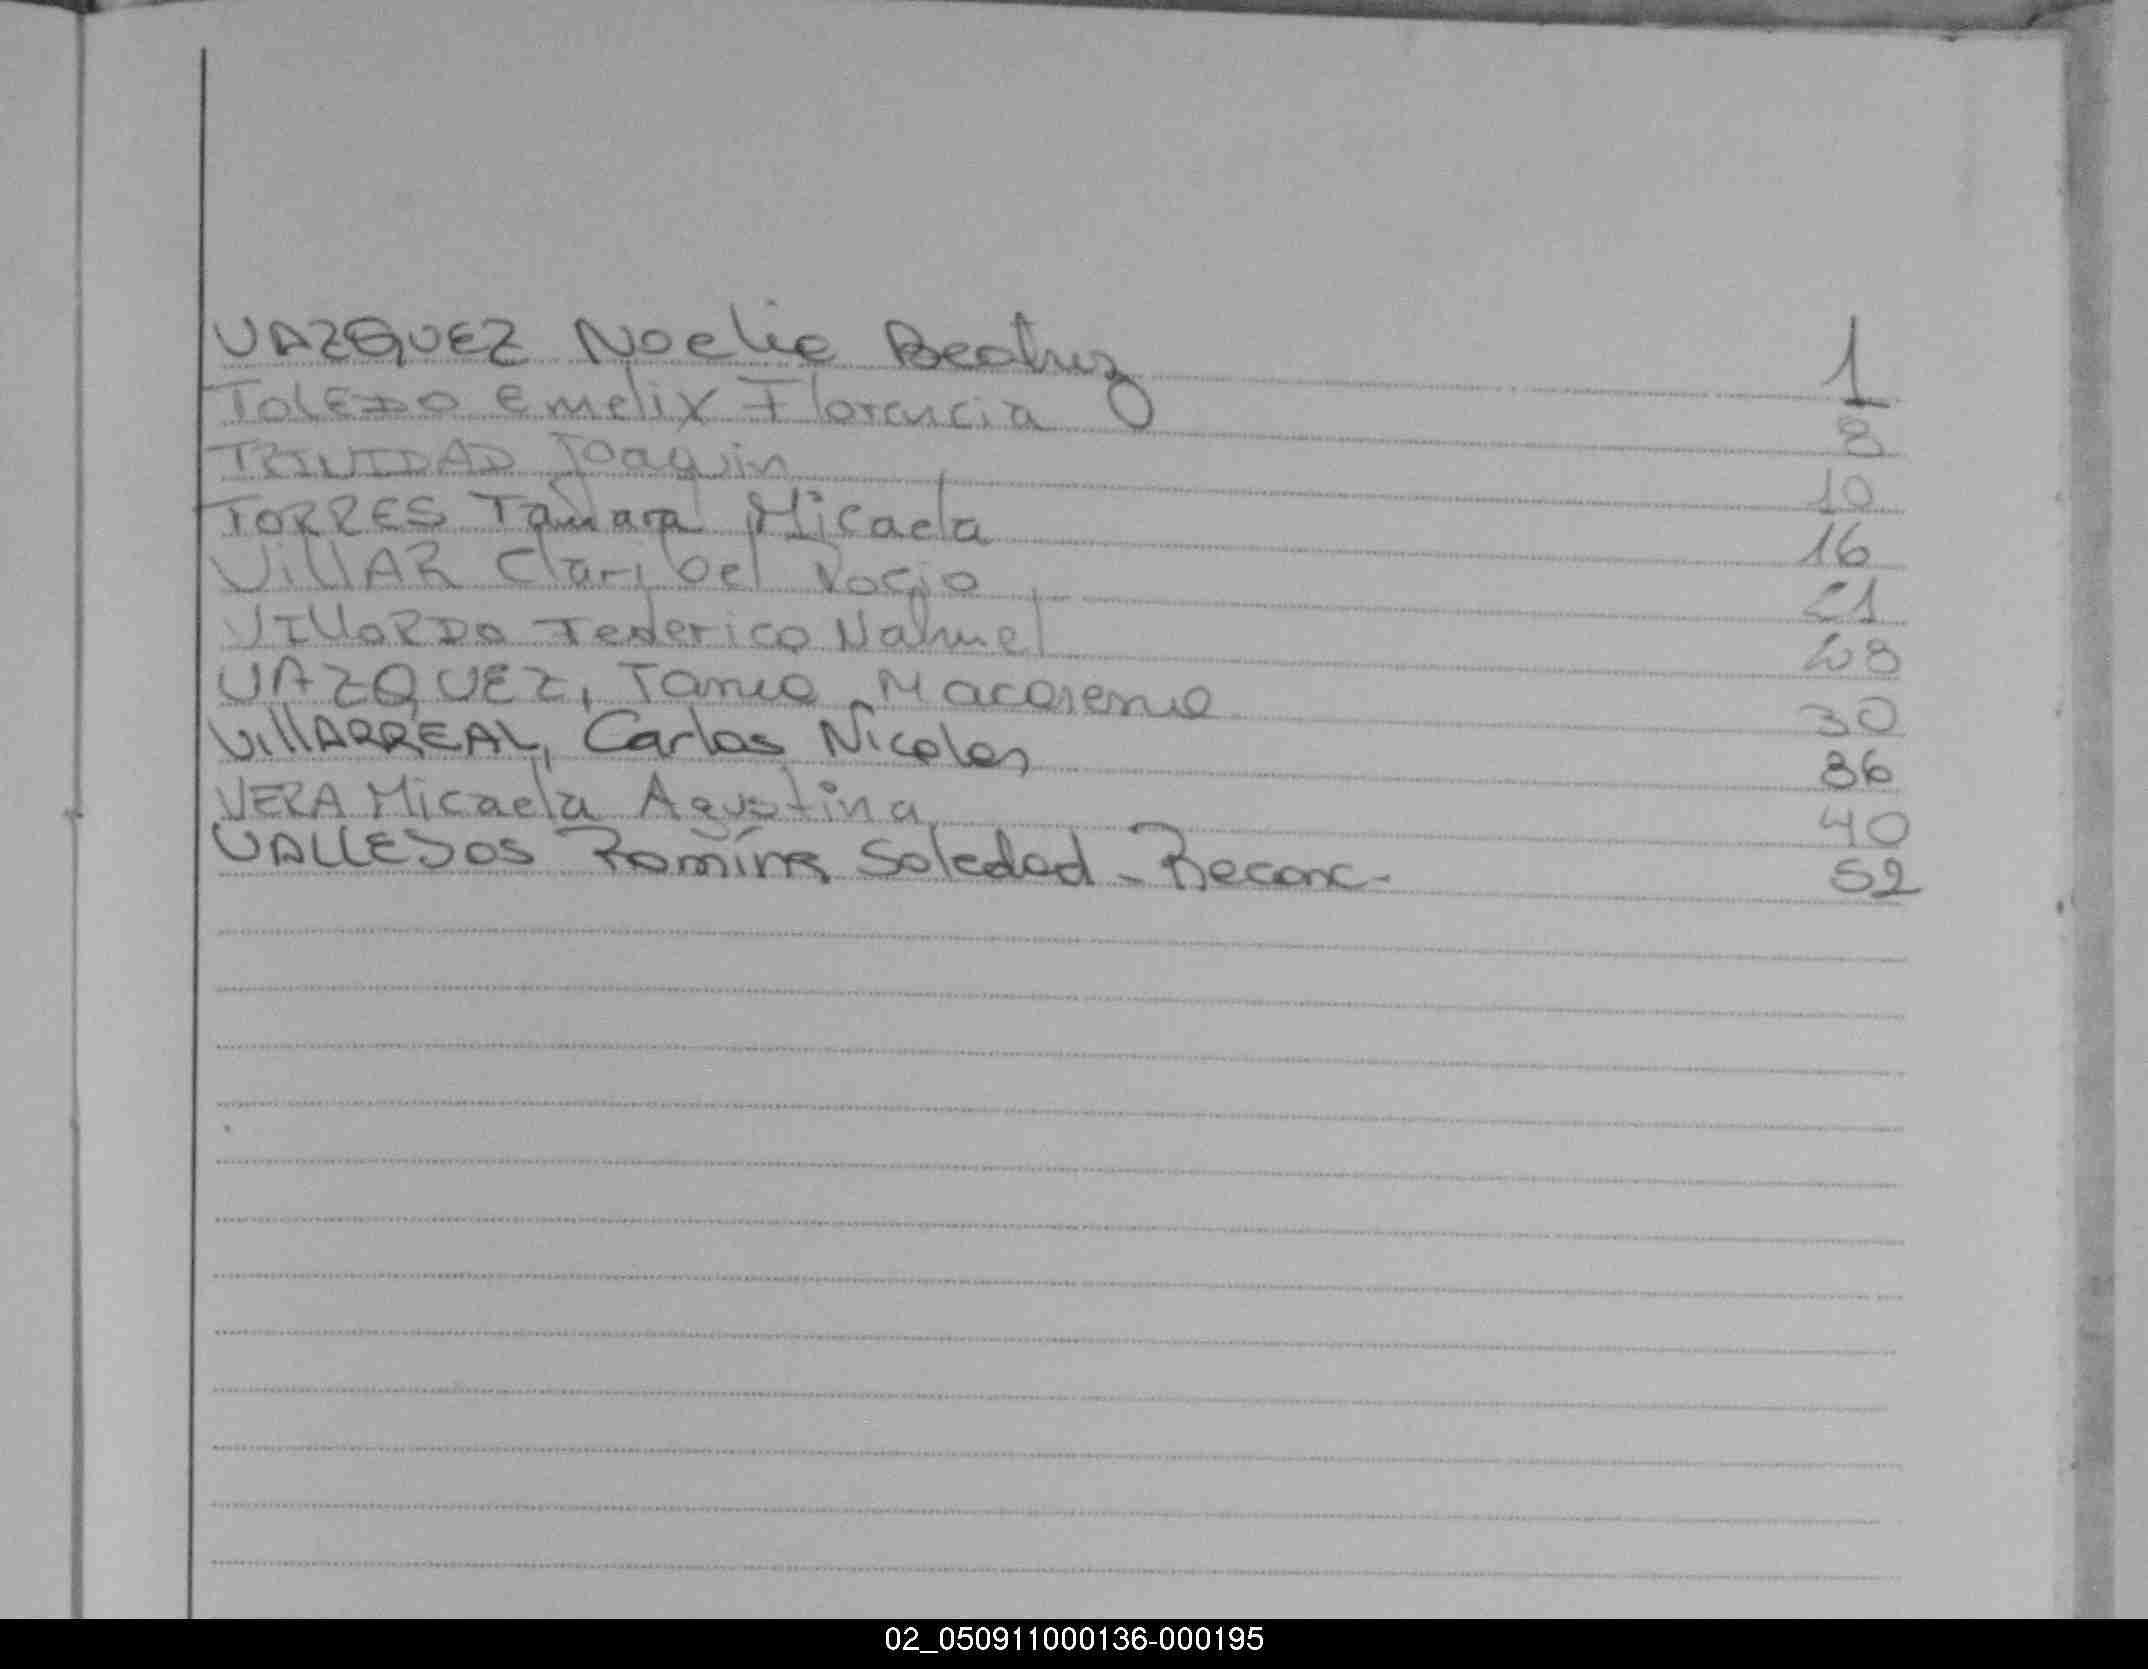 VAZQUEZ Noelia Beatriz 1
TOLEDO Emelix Florencia 8
TRINIDAD Joaquin 10
TORRES Tamara Micaela 16
VillAR Claribel Rocio 21
VILLORDO Federico Nahuel 28
VAZQUEZ, Tania Macarena 30
VillARREAL, Carlos Nicolas 36
VERA Micaela Agustina 40
VALLEJOS Romina Soledad - Reconc. 52
02_050911000136-000195